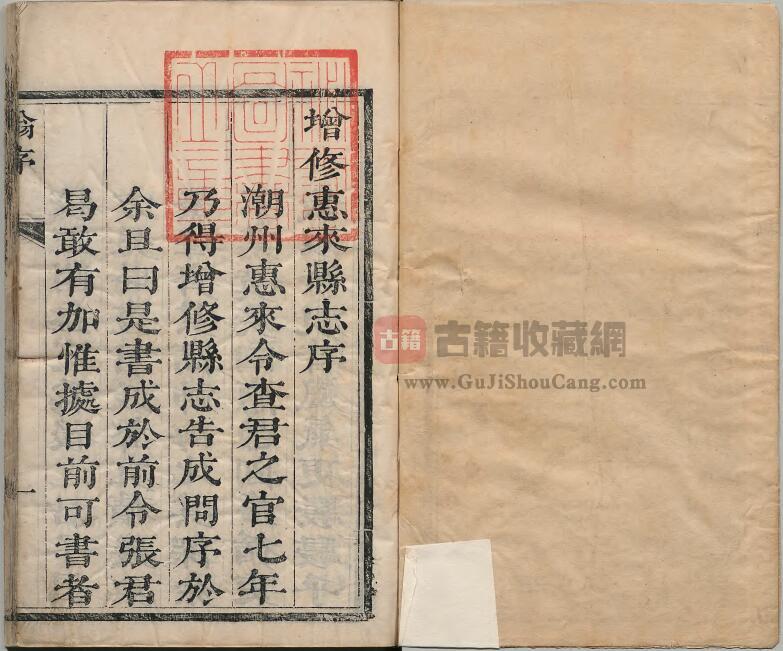 增修惠來縣志序
潮州惠來令查君之官七年
乃得增修縣志告成問序於
余且曰是書成於前令張君
曷敢有加惟㨿目前可書者
序
一
古籍
古籍收藏網
www.GuJiShouCang.com